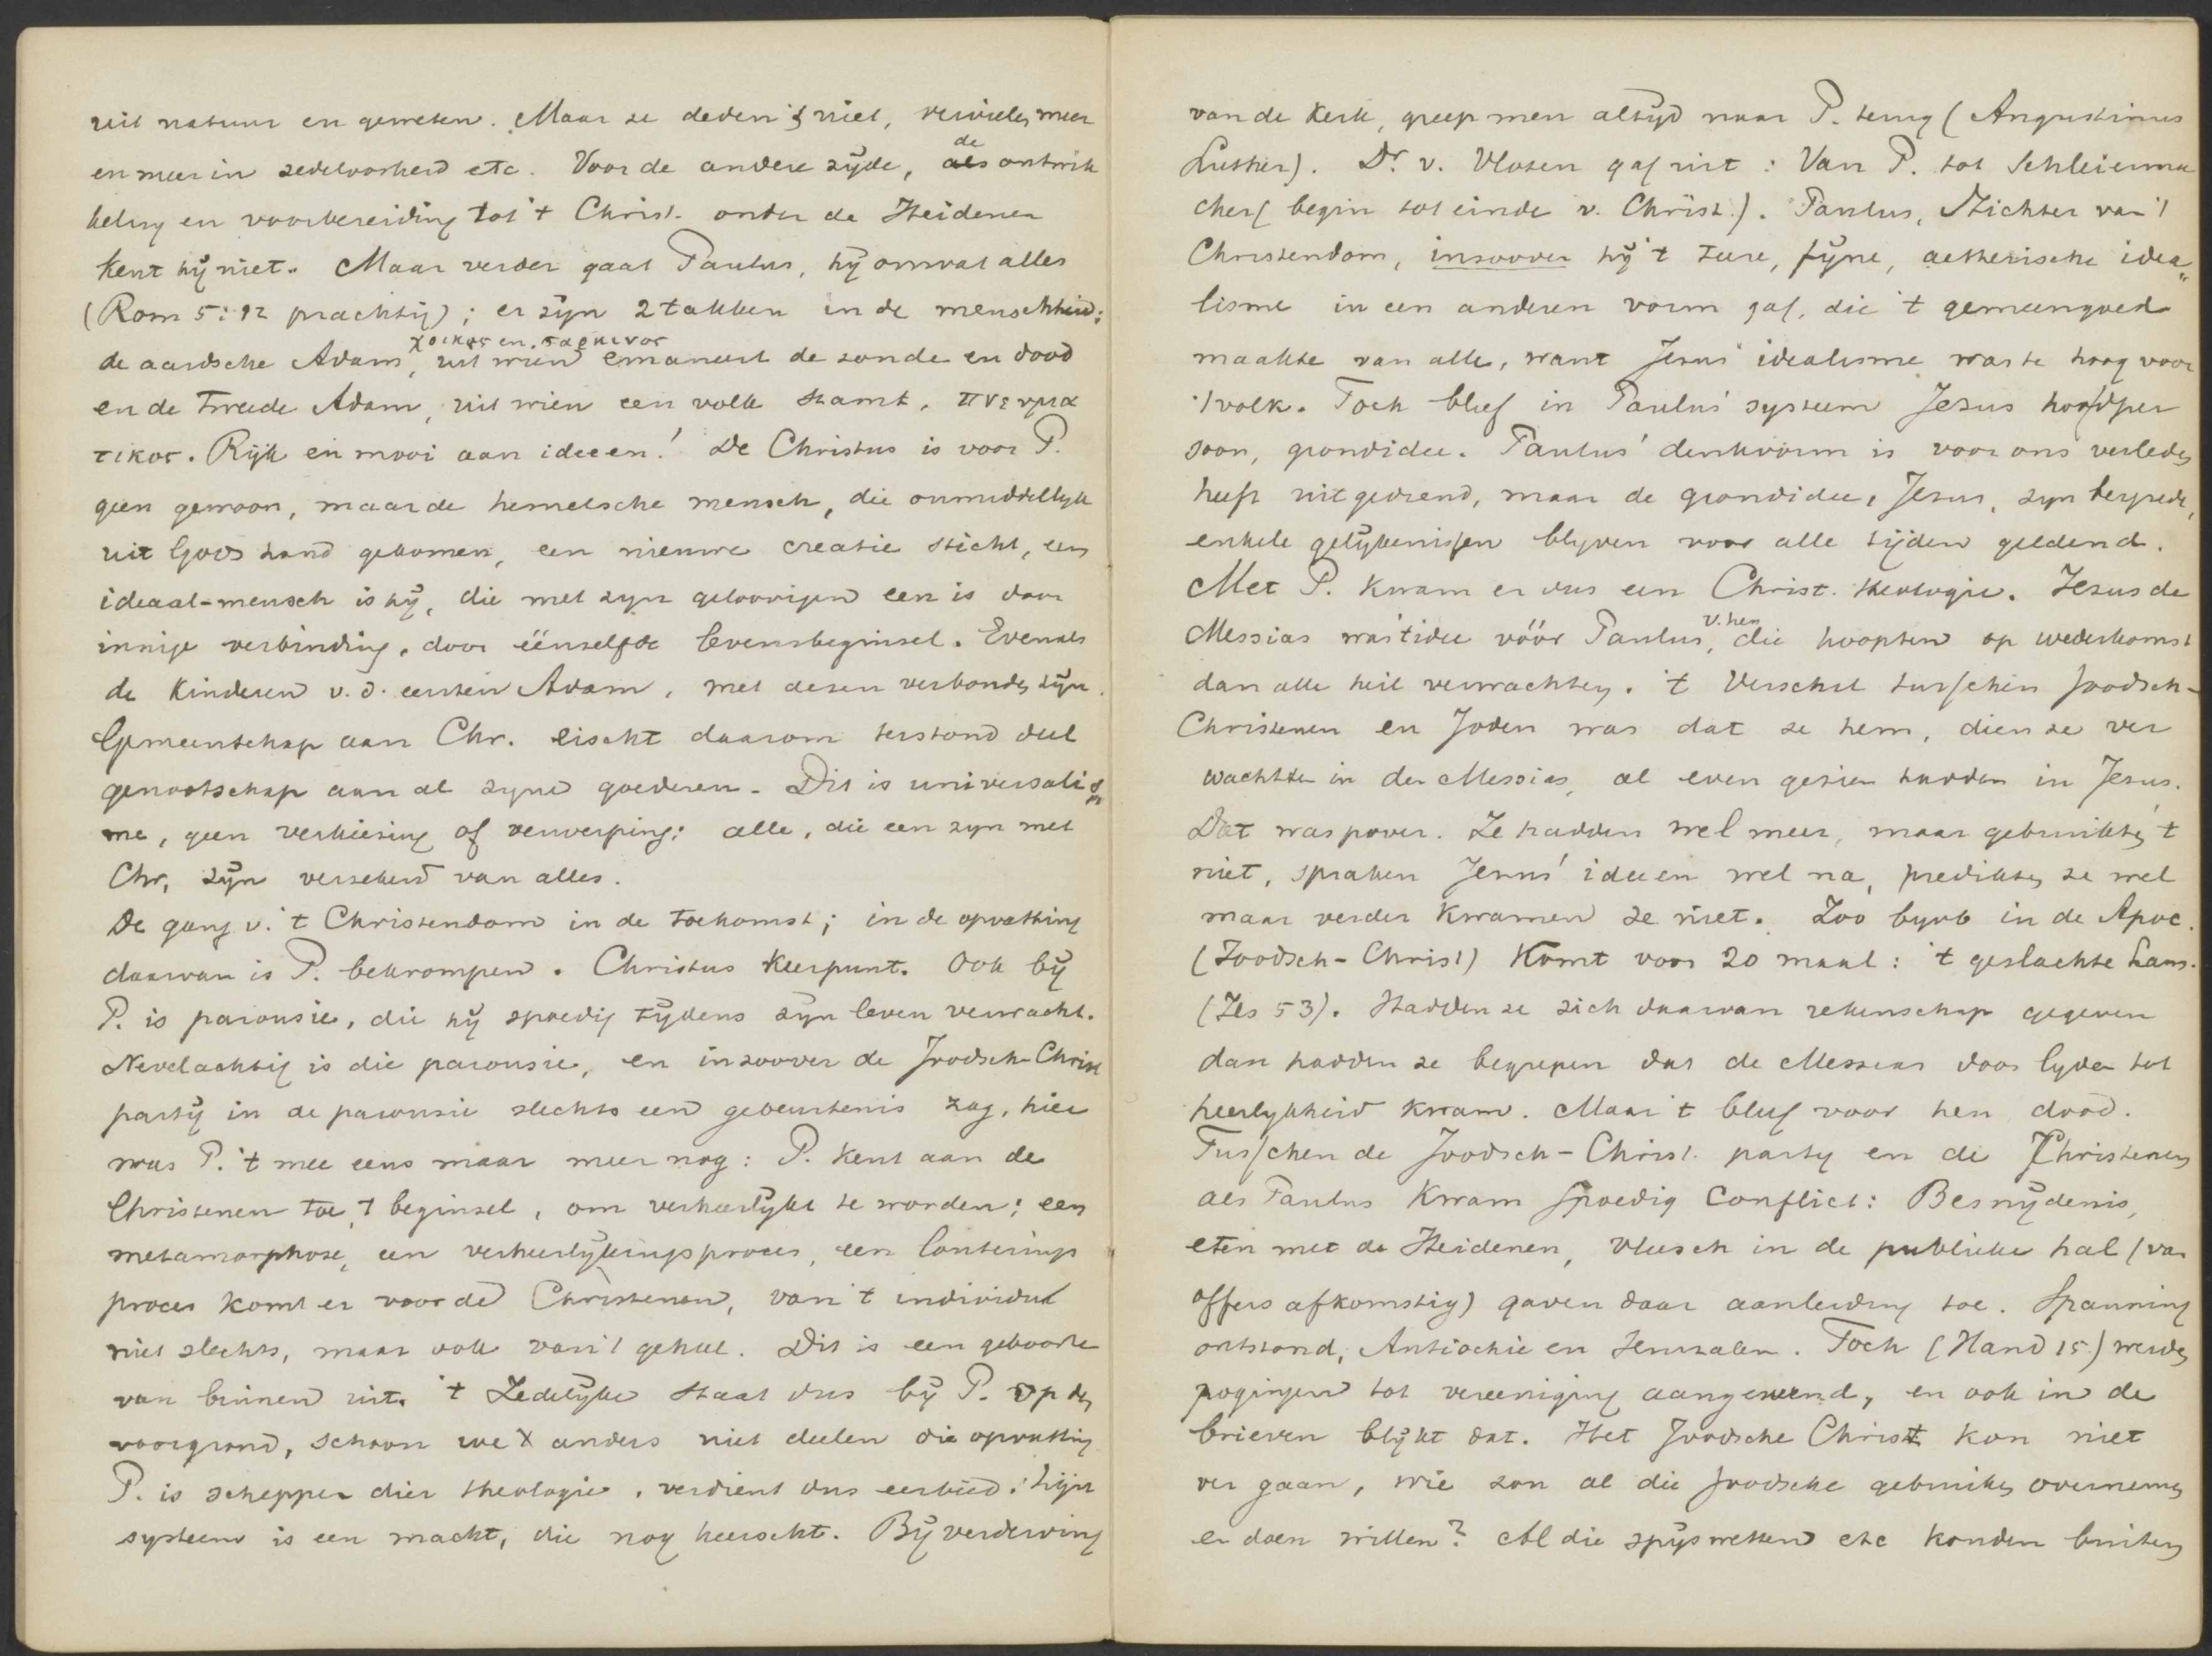 uit natuur en geweten. Maar ze deden 't niet, vervielen meer
en meer in zedeloosheid etc. Voor de andere zijde, de ontwik
keling en voorbereiding tot 't Christ. onder de Heidenen
kent hij niet. Maar verder gaat Paulus, hij omvat alles
(Rom 5:12 prachtig); er zijn 2 takken in de menschheid:
de aardsche Adam, χοικος en σαρκινος uit wien emaneert de zonde en dood
en de tweede Adam, uit wien een volk stamt, πνευμα
τικος. Rijk en mooi aan ideeen! De Christus is voor P.
geen gewoon, maar de hemelsche mensch, die onmiddellyk
uit Gods hand gekomen, een nieuwe creatie sticht, een
ideaal-mensch is hij, die met zyn geloovigen een is door
innige verbinding, door éénzelfde levensbeginsel. Evenals
de kinderen v.d. eersten Adam, met dezen verbonden zijn.
Gemeenschap aan Chr. eischt daarom terstond deel
genootschap aan al zyne goederen. Dit is universalis
me, geen verkiezing of verwerping: alle, die een zyn met
Chr, zijn verzekerd van alles.
De gang v. 't Christendom in de toekomst; in de opvatting
daarvan is P. bekrompen. Christus keerpunt. Ook bij
P. is parousie, die hij spoedig tijdens zijn leven verwacht.
Nevelachtig is die parousie, en inzoover de Joodsch-Christ
partij in de parousie slechts een gebeurtenis zag, hier
was P. 't mee eens maar meer nog: P. kent aan de
Christenen toe 't beginsel, om verheerlijkt te worden; een
metamorphose, een verheerlijkingsproces, een louterings
proces komt er voor de Christenen, van 't individu
niet slechts, maar ook van 't geheel. Dit is een geboorte
van binnen uit. 't Zedelijke staat dus bij P. op den
voorgrond, schoon we anders niet deelen die opvatting
P. is schepper dier theologie, verdient dus eerbied. Zijn
systeem is een macht, die nog heerscht. Bij verderving
van de Kerk, greep men altijd naar P. terug (Augustinus
Luther). Dr. v. Vloten gaf uit: Van P. tot Schleierma
cher (begin tot einde v. Christ.). Paulus, Stichter van 't
Christendom, inzoover hij 't teere, fijne, aetherische idea„
lisme in een anderen vorm gaf, die 't gemeengoed
maakte van alle, want Jezus' idealisme was te hoog voor
't volk. Toch bleef in Paulus' systeem Jezus hoofdper
soon, grondidee. Paulus' denkvorm is voor ons verleden
heeft uitgediend, maar de grondidee, Jezus, zyn bergrede,
enkele gelijkenissen blyven voor alle tijden geldend.
Met P. kwam er dus een Christ. theologie. Jezus de
Messias was 't idee vóór Paulus, v. hen die hoopten op wederkomst
dan alle heil verwachten. 't Verschil tusschen Joodsch-
Christenen en Joden was dat ze hem, dien ze ver
wachtten in den Messias, al even gezien hadden in Jezus.
Dat was pover. Ze hadden wel meer, maar gebruikten 't
niet, spraken Jezus' ideeen wel na, predikten ze wel
maar verder kwamen ze niet. Zoo byvb in de Apoc.
(Joodsch-Christ) komt voor 20 maal: 't geslachte Lam.
(Jes 53). Hadden ze zich daarvan rekenschap gegeven
dan hadden ze begrepen dat de Messias door lyden tot
heerlykheid kwam. Maar 't bleef voor hen dood.
Tusschen de Joodsch-Christ. party en de Christenen
als Paulus kwam spoedig conflict: Besnijdenis,
eten met de Heidenen, vleesch in de publieke hal (van
offers afkomstig) gaven daar aanleiding toe. Spanning
ontstond, Antiochie en Jeruzalem. Toch (Hand 15) werden
pogingen tot vereeniging aangewend, en ook in de
brieven blijkt dat. Het Joodsche Christ kon niet
ver gaan, wie zou al die Joodsche gebruiken overnemen
en doen willen? Al die spijswetten etc konden buiten